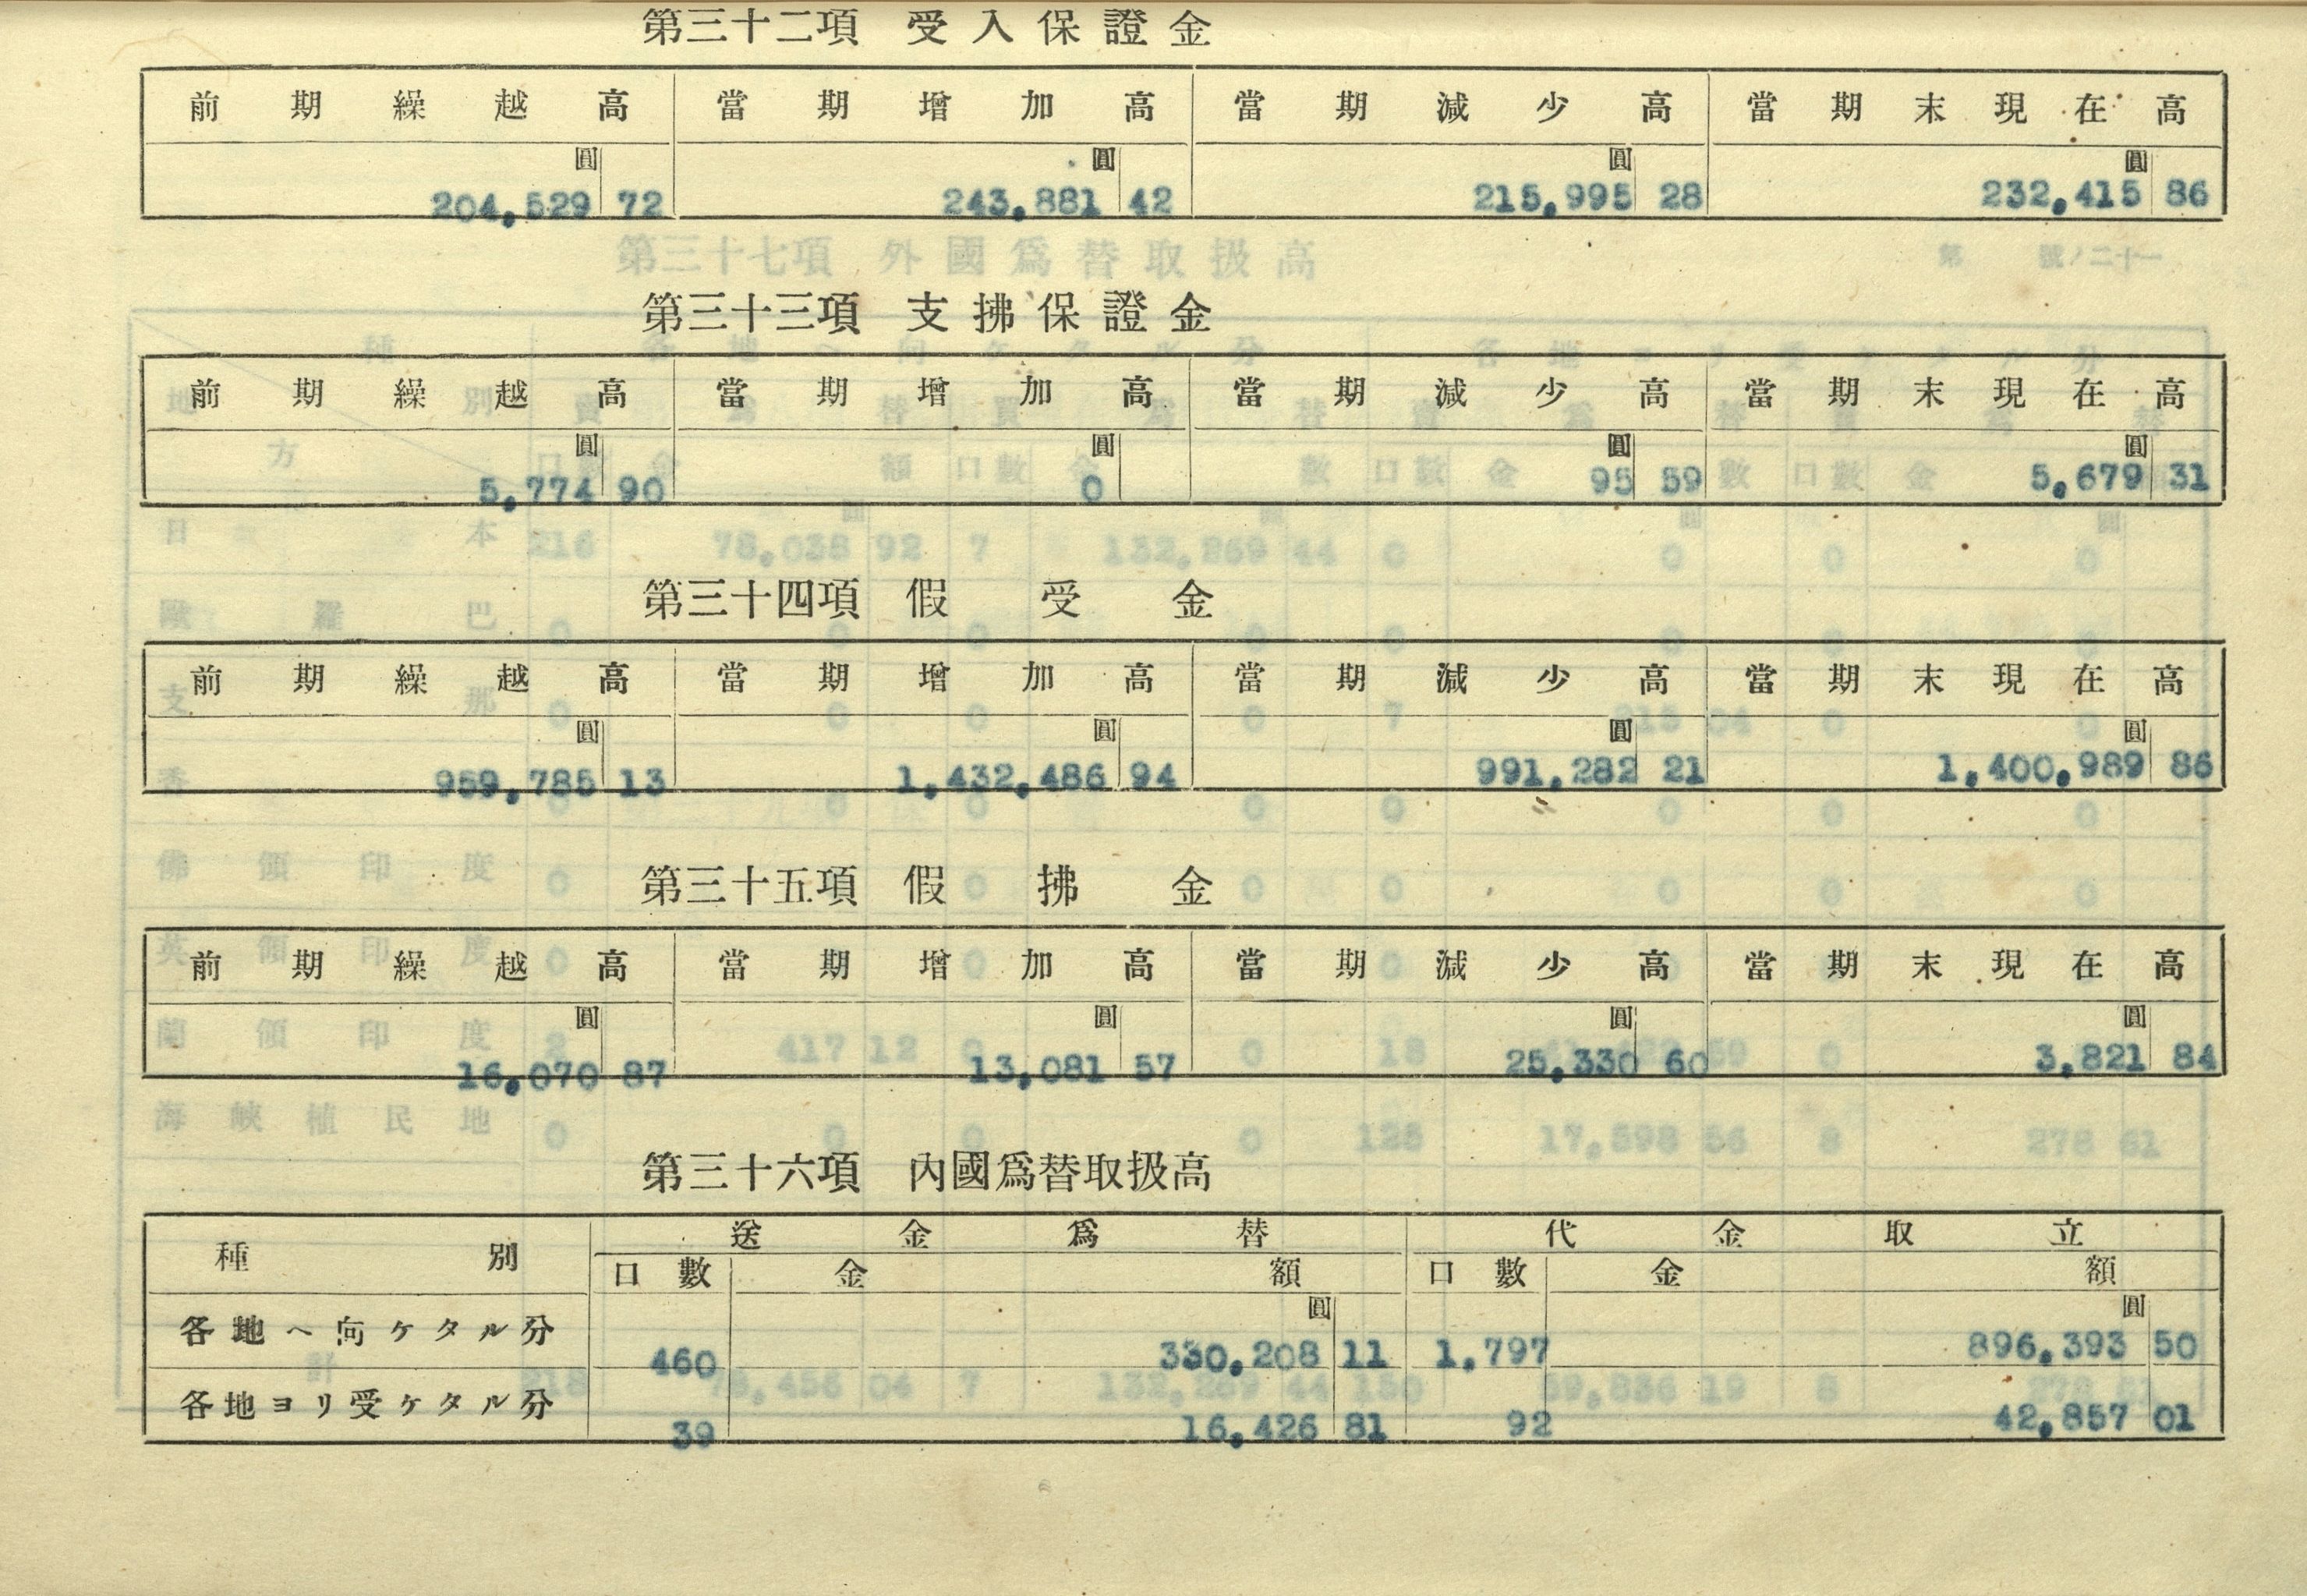 第三十二項 受入保證金
前期繰越高 當期增加高 當期減少高 當期末現在高
圓 圓 圓 圓
204,529 72 243,881 42 215,995 28 232,415 86
第三十三項 支拂保證金
前期繰越高 當期增加高 當期減少高 當期末現在高
圓 圓 圓 圓
5,774 90 0 95 59 5,679 31
第三十四項 假受金
前期繰越高 當期增加高 當期減少高 當期末現在高
圓 圓 圓 圓
959,785 13 1,432,486 94 991,282 21 1,400,989 86
第三十五項 假拂金
前期繰越高 當期增加高 當期減少高 當期末現在高
圓 圓 圓 圓
16,070 87 13,081 57 25,330 60 3,821 84
第三十六項 內國爲替取扱高
種別 送金爲替 代金取立
口數 金額 口數 金額
圓 圓
各地ヘ向ケタル分 460 330,208 11 1,797 896,393 50
各地ヨリ受ケタル分 39 16,426 81 92 42,857 01